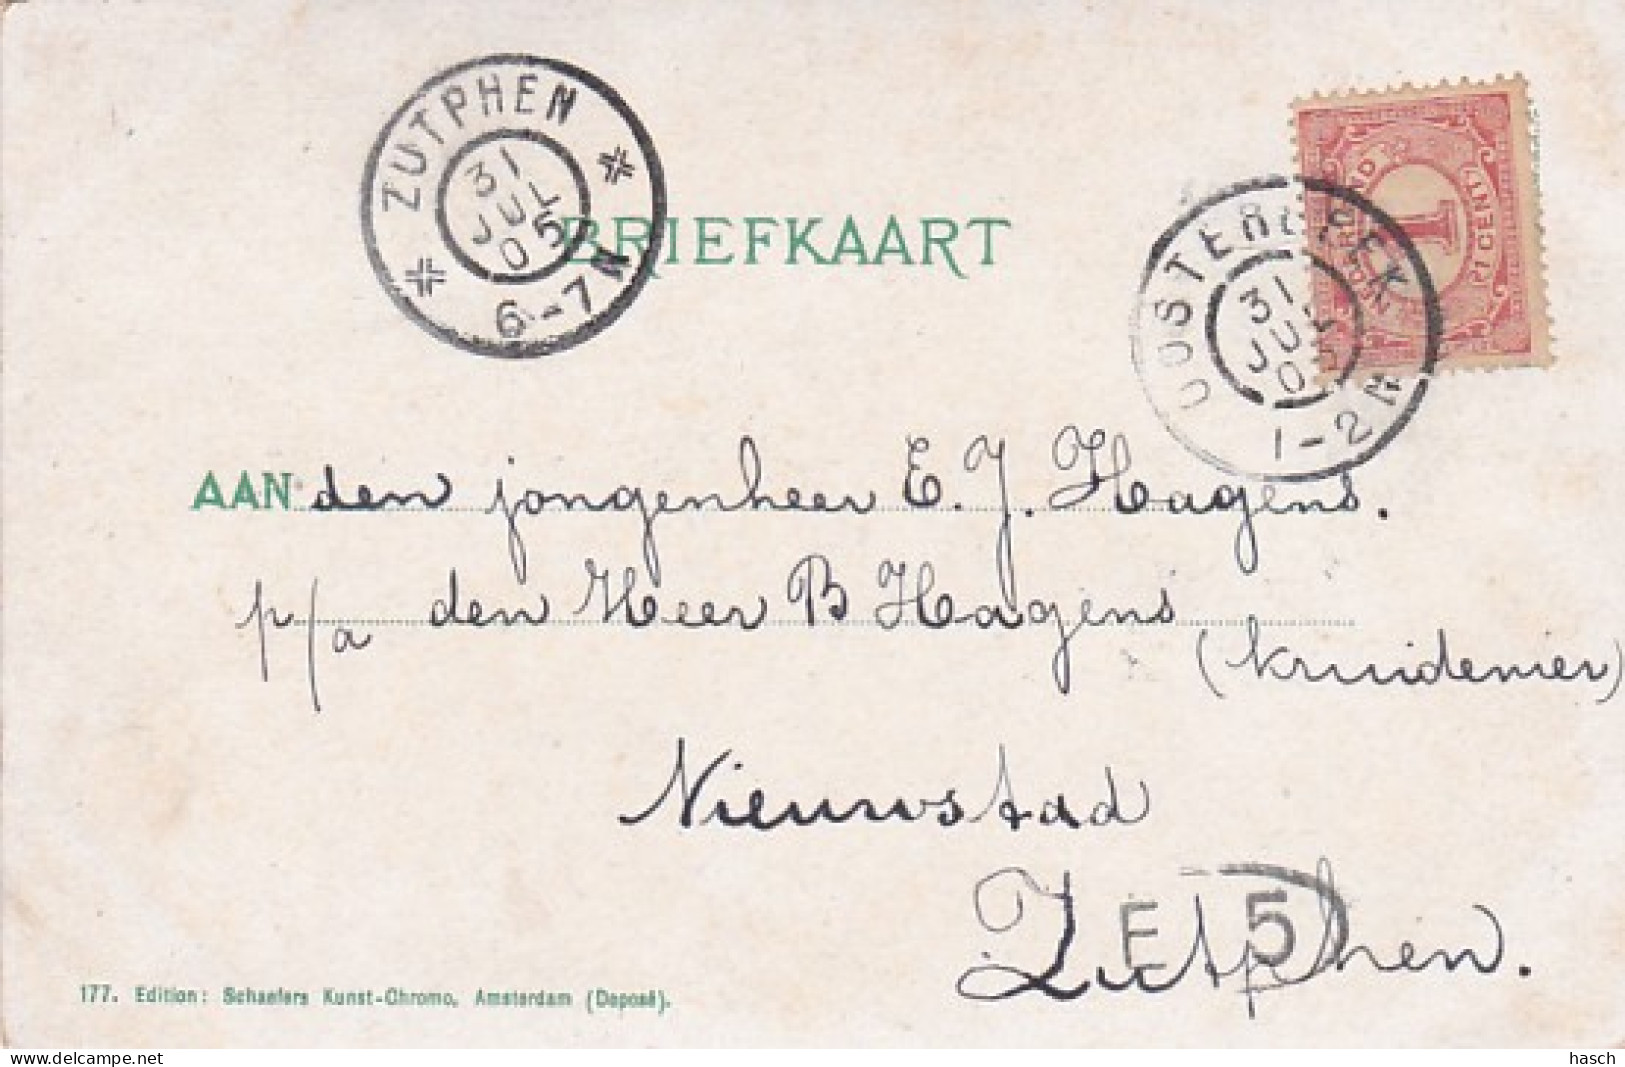 ZUTPHEN
31
JUL
05
6-7N
BRIEFKAART
NEDERLAND
1
(1 CENT)
OOSTERBEEK
31
JUL
0
1-2N
AAN den jongenheer E. J. Hagens.
p/a den Heer B Hagens
(kruidenier)
Nieuwstad
Zutphen.
E 5
177. Edition: Schaefers Kunst-Chromo, Amsterdam (Deposé).
www.delcampe.net
hasch